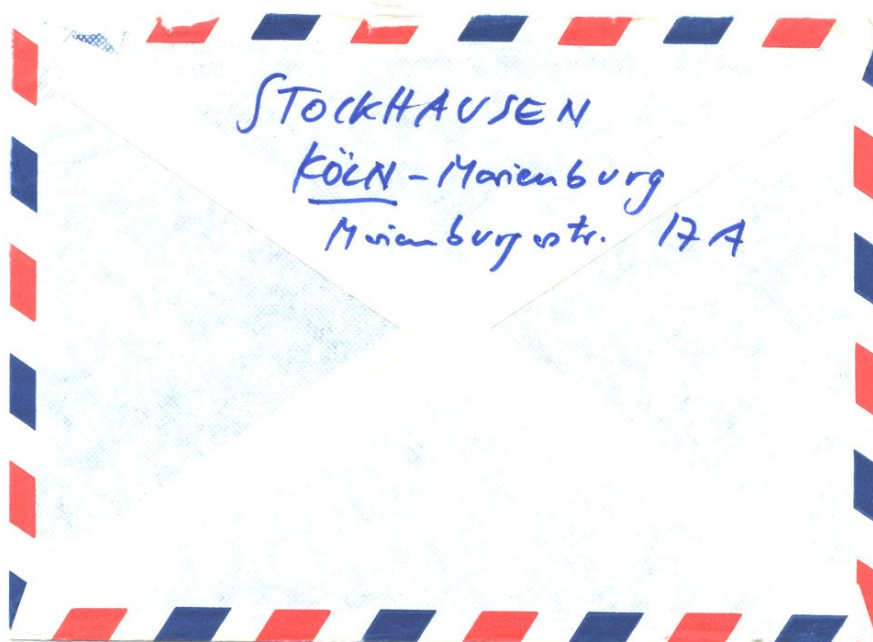 STOCKHAUSEN
KÖLN - Marienburg
Marienburgerstr. 17A